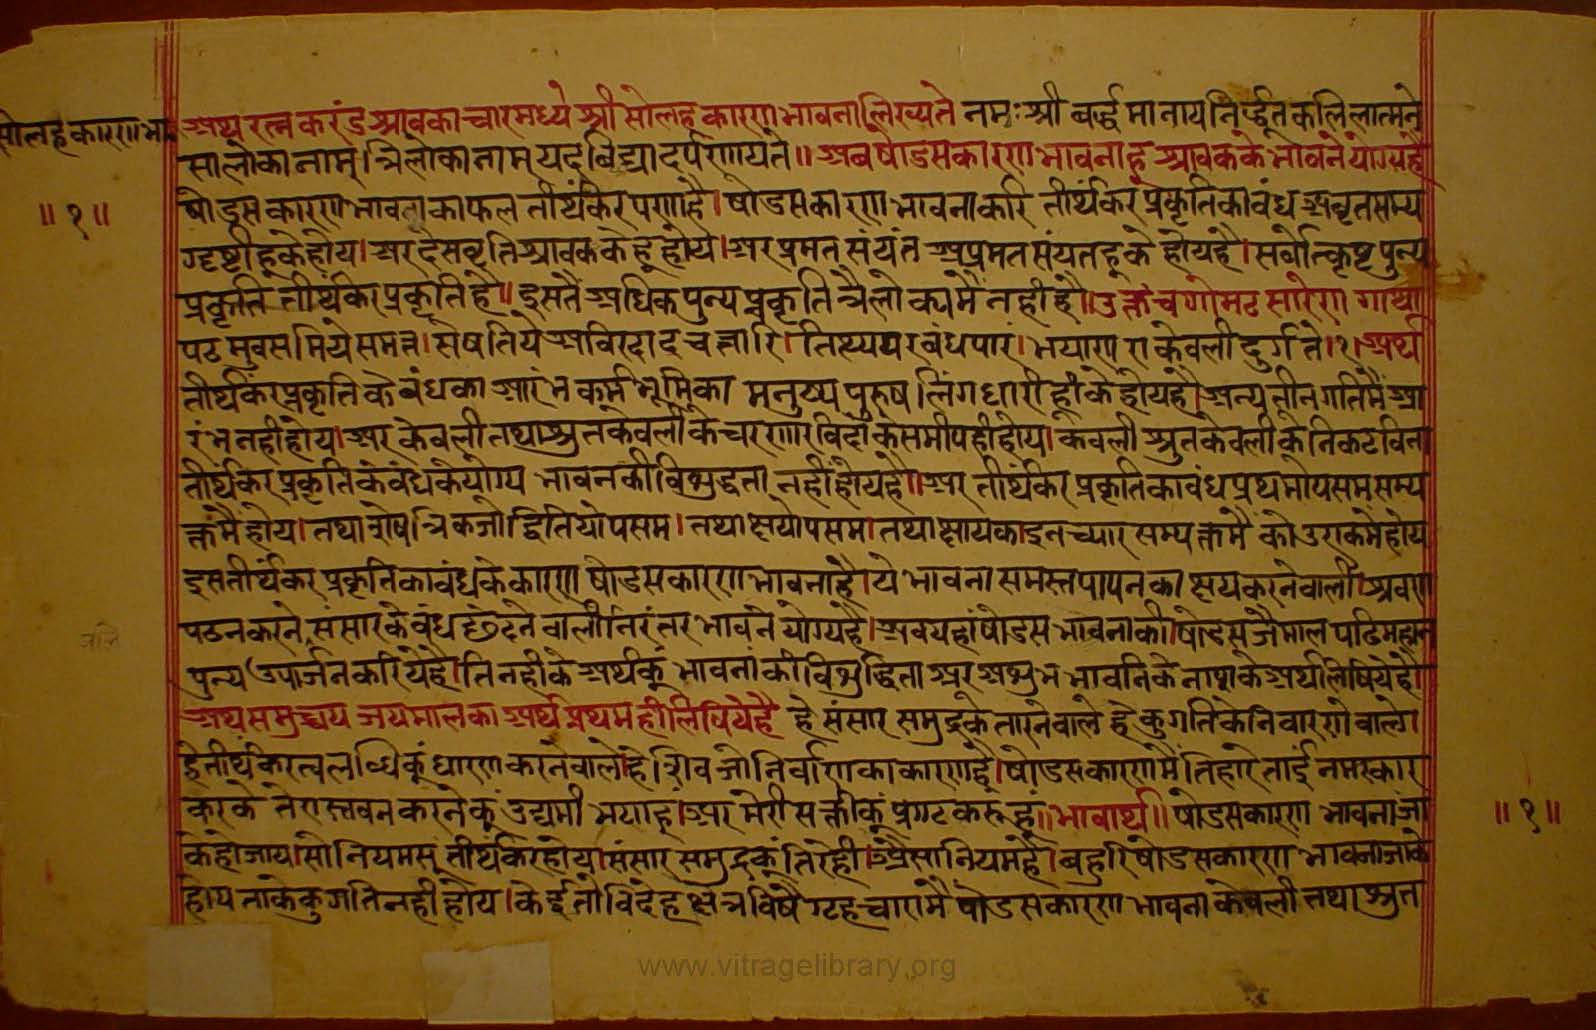 सोलह कारण भा॰
॥१॥
अथ रत्नकरंड श्रावकाचारमध्ये श्री सोलह कारण भावना लिख्यते नमः श्री वर्द्धमानाय निर्द्धूतकलिलात्मने
सालोकानाम् त्रिलोकानाम् यद्विद्यादर्पणायते॥ अब षोडसकारण भावना है श्रावकके भावने योग्य है
षोडसकारण भावना का फल तीर्थंकरपणा है। षोडसकारण भावनाकरि तीर्थंकर प्रकृतिका वंध अवृतसम्य
ग्दृष्टीहूके होय। अर देसवृति श्रावकके हू होय। अर प्रमत संयंत अप्रमत संयतहूके होय है। सर्वोत्कृष्ट पुन्य
प्रकृति तीर्थंकर प्रकृति है॥ इसतै अधिक पुन्य प्रकृति त्रैलोक्यमैं नहीं है॥ उक्तंच गोमटसारेण गाथा
पढमुवसमिये समत्त। सेषतिये अविरदादचत्तारि। तित्थयरबंधपारं। भयाणरा केवली दुर्गते।१। अर्थ
तीर्थंकर प्रकृति के बंधका आरंभ कर्मभूमिका मनुष्य पुरुष लिंगधारीहीके होय है। अन्य तीन गतिमैं आ
रंभ नही होय। अर केवली तथा श्रुतकेवलीके चरणारविंदाके समीपही होय। केवली श्रुतकेवलीके निकट विना
तीर्थंकर प्रकृतिके वंधके योग्य भावनकी विशुद्धता नहीं होय है॥ अर तीर्थंकर प्रकृतिका वंध प्रथमोपसमसम्य
क्तमै होय। तथा शेषत्रिक जो द्वितियोपसम। तथा क्षयोपसम। तथा क्षायका इन च्यार सम्यक्तमैं कोउ एकमे होय
इस तीर्थंकर प्रकृतिका वंधके कारण षोडसकारण भावना है। ये भावना समस्त पापनका क्षय करनेवाली। श्रवण
पठन करने संसारके वंध छेदने वाली निरंतर भावने योग्य है। अब यहां षोडस भावनाकी। षोडस जैमाल पढि महान
पुन्य उपार्जन करिये है। तिनहीके अर्थकूं भावनांकी विशुद्धिता अर अशुभ भावनिके नाशके अर्थ लिषिये है॥
अथ समुच्चय जयमालका अर्थ प्रथमही लिषिये है हे संसार समुद्रके तारनेवाले हे कुगतिके निवारणे वाले।
हे तीर्थंकरत्व लब्धिकूं धारण करनेवाले। हे शिव जो निर्वाणका कारण है। षोडसकारणमैं तिहारे ताई नमस्कार
करके तेरा स्तवन करनेकूं उद्यमी भया हूं। अर मेरी सक्तीकूं प्रगट करू हूं॥ भावार्थ॥ षोडसकारण भावना जा
के हो जाय। सो नियमसूं तीर्थंकर होय। संसार समुद्रकूं तिरेही। अैसा नियम है। बहुरि षोडसकारण भावना जाके
होय ताके कुगति नही होय। केई तो विदेह क्षेत्रविषै ग्टहचारामैं षोडसकारण भावना केवली तथा श्रुत
॥१॥
www.vitragelibrary.org